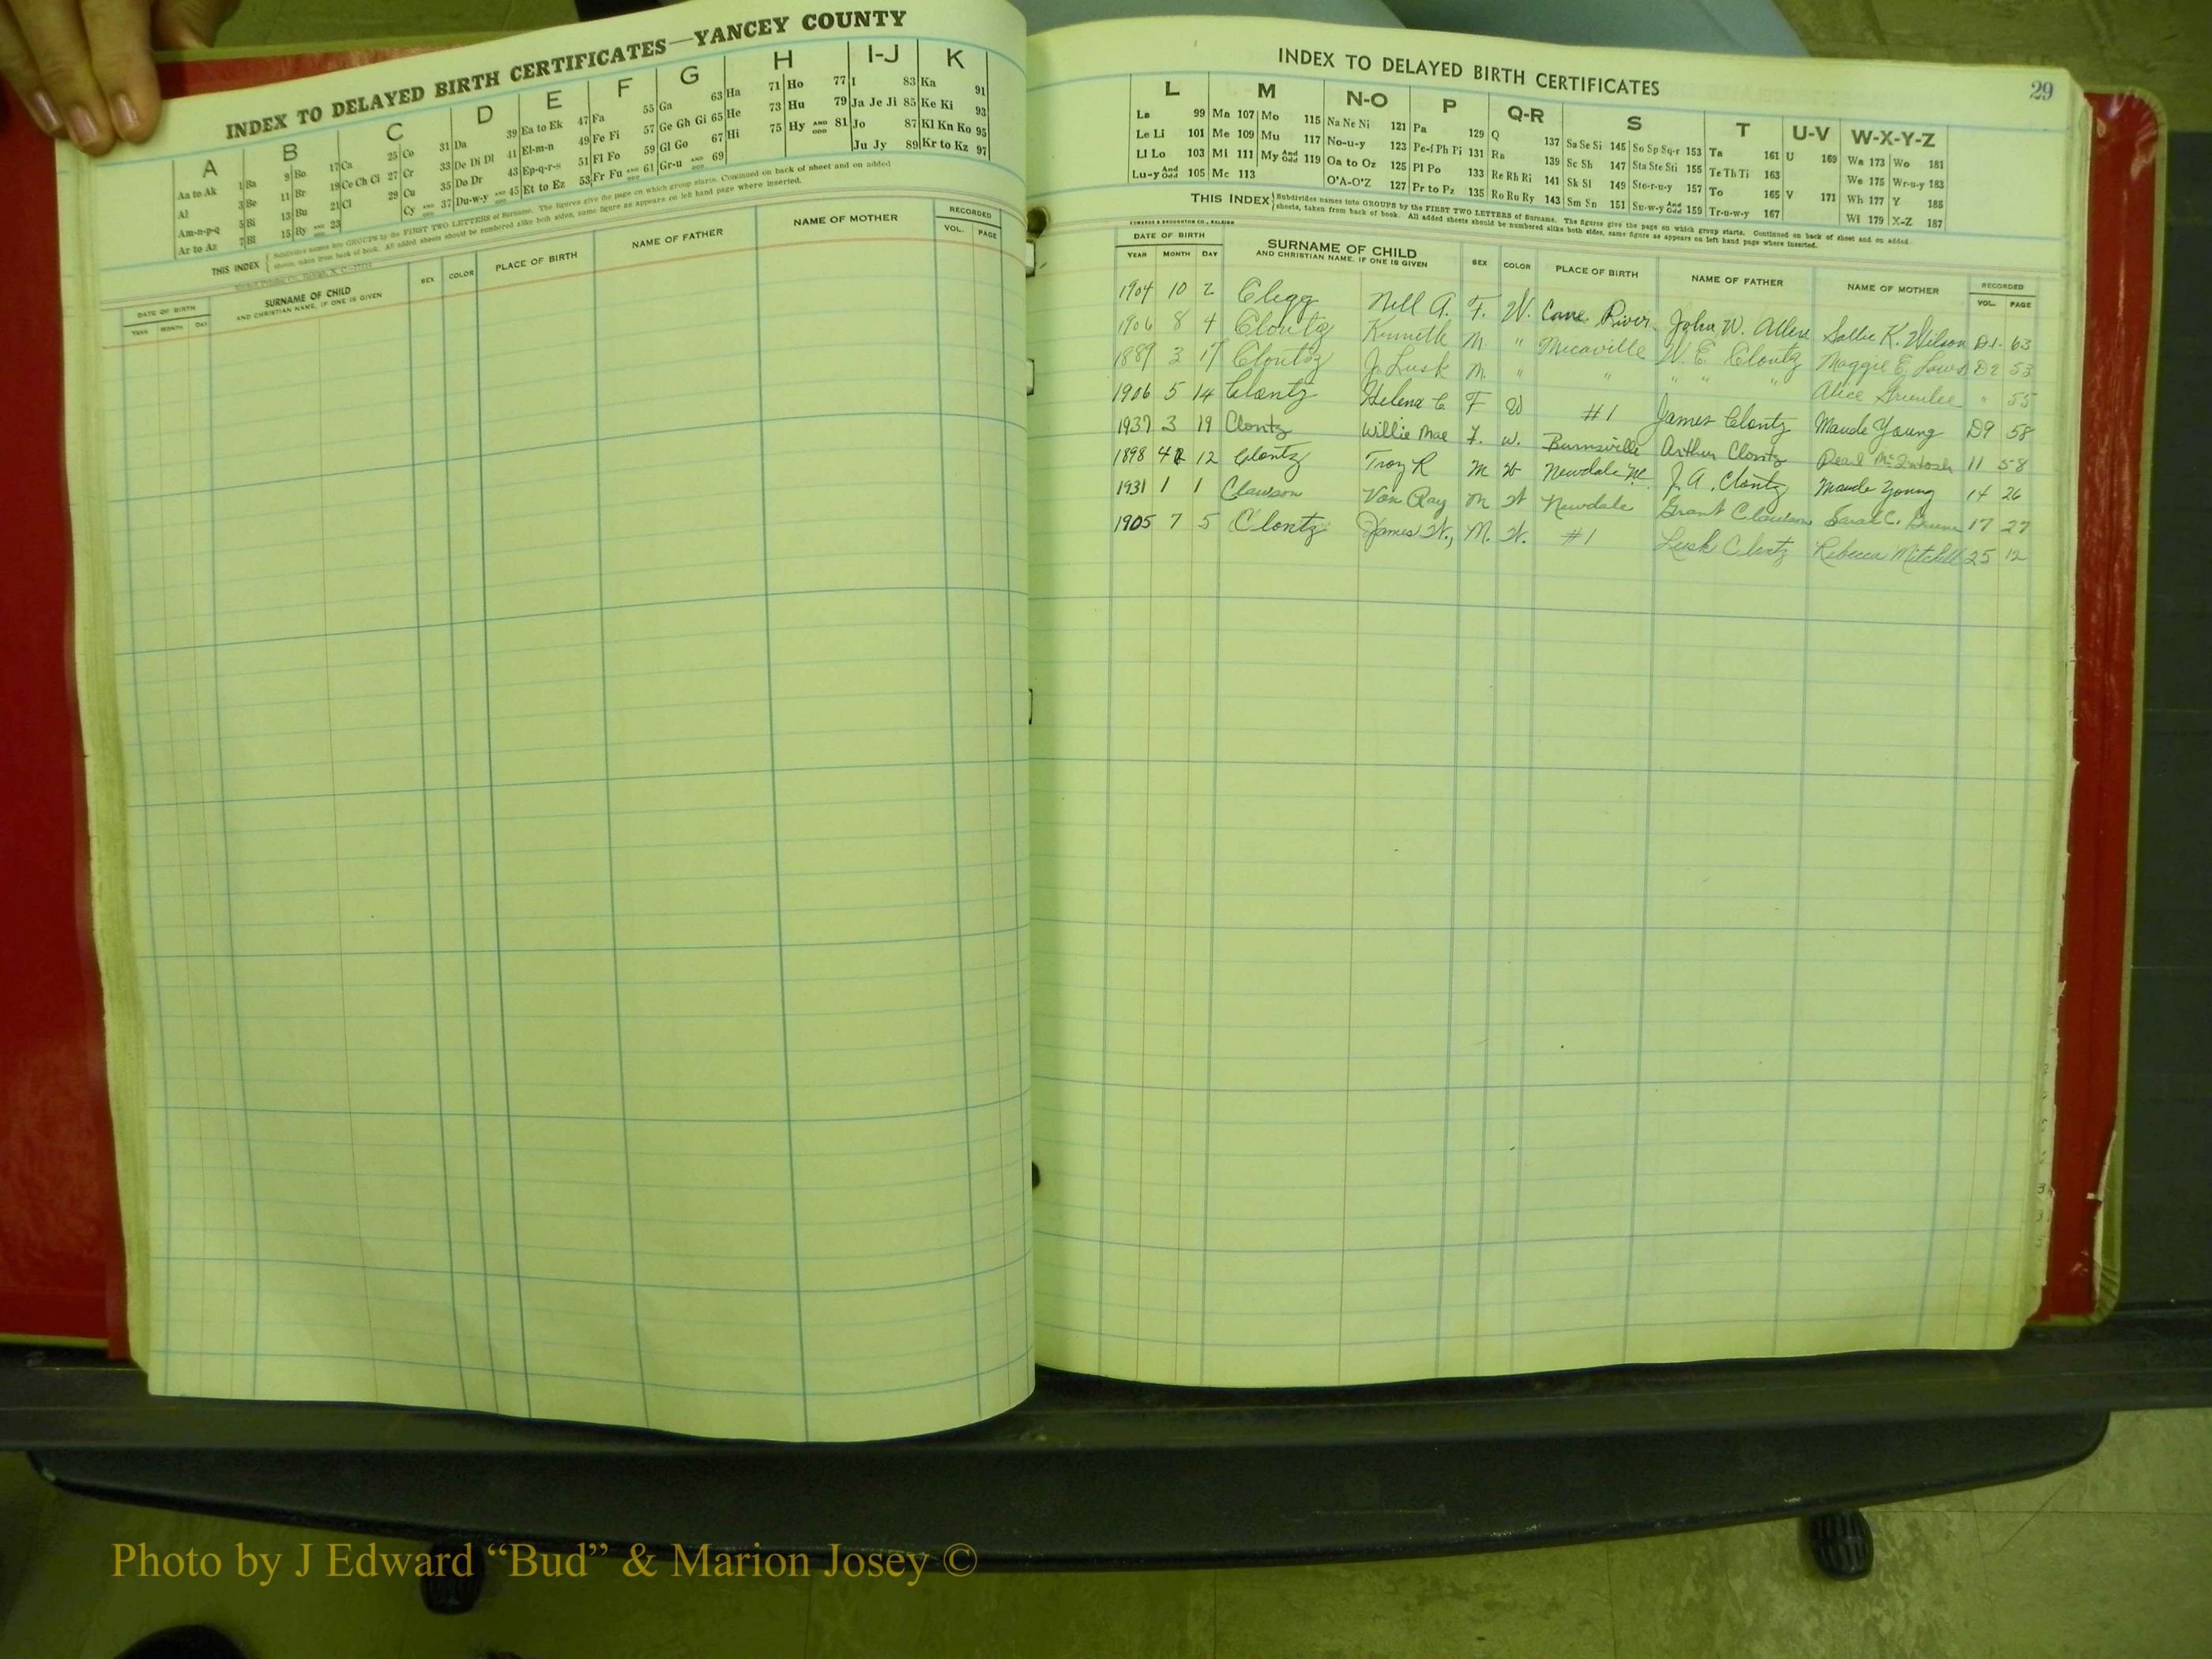 INDEX TO DELAYED BIRTH CERTIFICATES—YANCEY COUNTY
A B C D E F G H I-J K
Aa to Ak 1 Ba 9 Bo 17 Ca 25 Co 31 Da 39 Ea to Ek 47 Fa 55 Ga 63 Ha 71 Ho 77 I 83 Ka 91
Al 3 Be 11 Br 19 Ce Ch Ci 27 Cr 33 De Di Dl 41 El-m-n 49 Fe Fi 57 Ge Gh Gi 65 He 73 Hu 79 Ja Je Ji 85 Ke Ki 93
Am-n-p-q 5 Bi 13 Bu 21 Cl 29 Cu 35 Do Dr 43 Ep-q-r-s 51 Fl Fo 59 Gl Go 67 Hi 75 Hy AND ODD 81 Jo 87 Kl Kn Ko 95
Ar to Az 7 Bl 15 By AND 23 Cy AND 37 Du-w-y AND 45 Et to Ez 53 Fr Fu AND ODD 61 Gr-u AND ODD 69 Ju Jy 89 Kr to Kz 97
THIS INDEX Subdivides names into GROUPS by the FIRST TWO LETTERS of Surname. The figures give the page on which group starts. Continued on back of sheet and on added
sheets, taken from back of book. All added sheets should be numbered alike both sides, same figure as appears on left hand page where inserted.
DATE OF BIRTH
YEAR MONTH DAY
SURNAME OF CHILD
AND CHRISTIAN NAME, IF ONE IS GIVEN
SEX COLOR PLACE OF BIRTH NAME OF FATHER NAME OF MOTHER
RECORDED
VOL. PAGE
INDEX TO DELAYED BIRTH CERTIFICATES
29
L M N-O P Q-R S T U-V W-X-Y-Z
La 99 Ma 107 Mo 115 Na Ne Ni 121 Pa 129 Q 137 Sa Se Si 145 So Sp Sq-r 153 Ta 161 U 169 Wa 173 Wo 181
Le Li 101 Me 109 Mu 117 No-u-y 123 Pe-f Ph Pi 131 Ra 139 Sc Sh 147 Sta Ste Sti 155 Te Th Ti 163 We 175 Wr-u-y 183
Ll Lo 103 Mi 111 My And Odd 119 Oa to Oz 125 Pl Po 133 Re Rh Ri 141 Sk Sl 149 Sto-r-u-y 157 To 165 V 171 Wh 177 Y 185
Lu-y And Odd 105 Mc 113 O'A-O'Z 127 Pr to Pz 135 Ro Ru Ry 143 Sm Sn 151 Su-w-y And Odd 159 Tr-u-w-y 167 Wi 179 X-Z 187
THIS INDEX Subdivides names into GROUPS by the FIRST TWO LETTERS of Surname. The figures give the page on which group starts. Continued on back of sheet and on added
sheets, taken from back of book. All added sheets should be numbered alike both sides, same figure as appears on left hand page where inserted.
EDWARDS & BROUGHTON CO., RALEIGH
DATE OF BIRTH
YEAR MONTH DAY
SURNAME OF CHILD
AND CHRISTIAN NAME, IF ONE IS GIVEN
SEX COLOR PLACE OF BIRTH NAME OF FATHER NAME OF MOTHER
RECORDED
VOL. PAGE
1904 10 2 Clegg Nell A. F. W. Cane River John W. Allen Sallie K. Wilson D1 63
1906 8 4 Cloutz Kenneth M. " Micaville W. E. Cloutz Maggie E. D2 53
1889 3 17 Cloutz J. Lusk M. " " " " " Alice Greenlee " 55
1906 5 14 Clontz Helena C. F W #1 James Clontz Maude Young D9 58
1937 3 19 Clontz Willie Mae F. W. Burnsville Arthur Clontz Pearl McIntosh 11 58
1898 4 12 Clontz Troy R M W Newdale J. A. Clontz Maude Young 14 26
1931 1 1 Clawson Von Ray M W Newdale Grant Clawson Sarah C. 17 27
1905 7 5 Clontz James W., M. W. #1 Lusk Clontz Rebecca Mitchell 25 12
Photo by J Edward “Bud” & Marion Josey ©